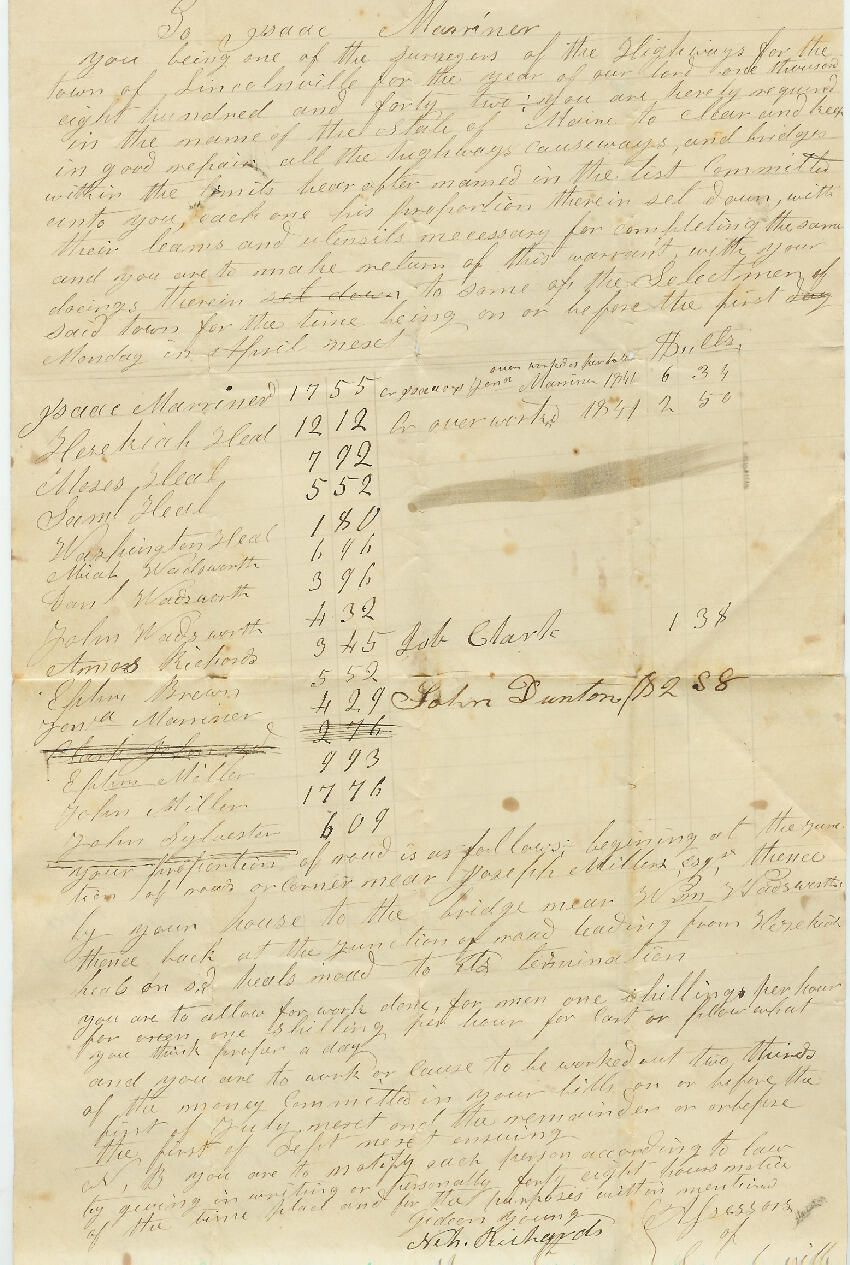 To Isaac Marriner
you being one of the surveyers of the Highways for the
town of Lincolnville for the year of our lord one thousand
eight hundred and forty two: you are hereby required
in the name of the State of Maine to clear and keep
in good repair all the highways causeways, and bridges
within the limits hearafter named in the list Committed
unto you, each one his proportion therein set down, with
their teams and utensils necessary for completing the same
and you are to make return of this warrant with your
doeings therein set down to some of the Selectmen of
said town for the time being on or before the first day
Monday in April next
Isaac Marriner 17 55 Cr Isaac & Jona Marriner 1841 6 34
Hezekiah Heal 12 12 Cr over worked 1841 2 50
Moses Heal 7 92
Saml Heal 5 52
Washington Heal 1 80
Micah Wadsworth 6 96
Danl Wadsworth 3 96
John Wadsworth 4 32
Amos Richards 3 45 Job Clark 1 38
Ephm Brown 5 52
Jona Marriner 4 29 John Dunton $2 58
2 76
Ephm Miller 9 93
John Miller 17 76
John Sylvester 6 09
your proportion of road is as follows; begining at the junc-
tion of road or corner near Joseph Millers, Esqr, thence
by your house to the bridge near Wm Wadsworths
thence back at the junction of road leading from Hezekiah
heals on sd heals road to its termination
you are to allow for work done, for men one shilling per hour
for oxen, one shilling per hour for Cart or plow what
you think proper a day
and you are to work or cause to be worked out two thirds
of the money Committed in your bills on or before the
first of July next and the remainder on or before
the first of Sept next ensuing
N, B you are to notify each person according to law
by giveing in writing or personally forty eight hours notice
of the time place and for the purposes within mentioned
Gideon Young
Nth. Richards
Assessors
of